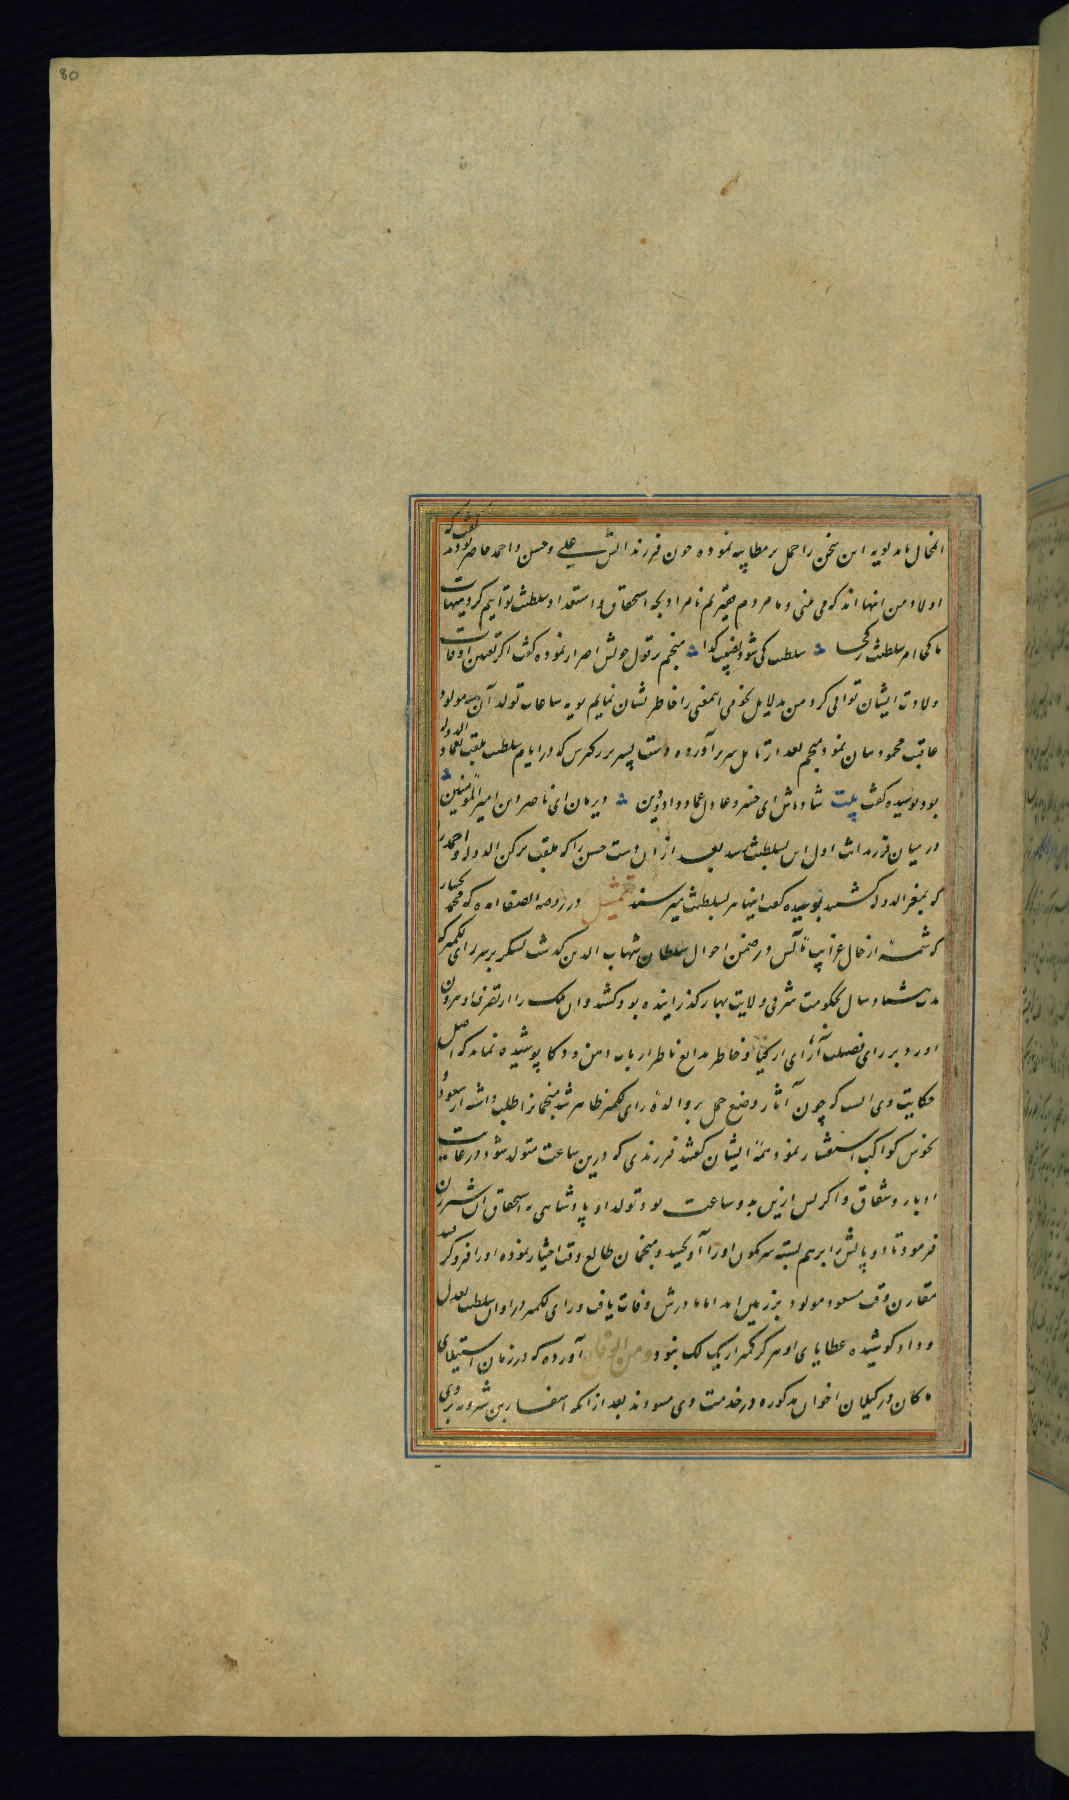 80
این سخن را حمل بر مطایبه نموده چون فرزندانش علی و حسن و احمد حاضر بودند گفت که
اولاد من اینها اند که می بینی و ما مردم فقیریم نامراد بچه استحقاق و استعداد سلطنت توانیم کرد هیهات
ما کجا امر سلطنت ز کجا سلطنت کی شود نصیب گدا منجم بر قول خویش اصرار نموده گفت اگر تعیین اوقات
ولادت ایشان توانی کرد من بدلایل نجومی این معنی را خاطر نشان نمایم بویه ساعات تولد آن سه مولود
عاقبت محمود بیان نمود منجم بعد از تامل سر برآورده دست پسر بزرگترش که در ایام سلطنت ملقب بعماد الدوله
بود بوسیده گفت بیت شاد باش ای خسرو عادل عماد داد و دین دیر مان ای ناصر دین امیر المؤمنین
در میان فرزندانت اول این بسلطنت رسد بعد از آن دست حسن را که ملقب برکن الدوله و احمد را
که بمعز الدوله گشتند بوسیده گفت اینها هم بسلطنت میرسند تمثیل در روضه الصفا آمده که محمد بختیار
که شمه از حال غرایب مآلش در ضمن احوال سلطان شهاب الدین گذشت لشکر بر سر رای لکمیر که
مدت هشتاد سال بحکومت شرقی ولایت بهار گذرانیده بود کشید و آن ملک را از تصرف او بیرون
آورد بر رای فضیلت آرای ارکیا و خاطر بدایع ناظر ارباب ذهن و ذکا پوشیده نماند که اصل
حکایت وی آنست که چون آثار وضع حمل بر والده رای لکمیر ظاهر شد منجمان را طلب داشته از سعود و
نحوس کواکب استفسار نمود همه ایشان گفتند فرزندی که درین ساعت متولد شود در غایت
ادبار و شقاق و اگر پس ازین بدو ساعت بود تولد او پادشاهی به استحقاق آن شیرزن
فرمود تا دو پایش را برهم بسته سرنگون او را آویختند و منجمان طالع وقت اختیار نموده او را فرو گرفتند
مقارن وقت مسعود مولود بزرمین آمد اما مادرش وفات یافت و رای لکمیر در اوان سلطنت بعدل
و داد کوشیده عطایای او هرگز کمتر از یک لک نبود و من الوفیات آورده که در زمان استیلای
ماکان در گیلان اخوان مذکوره در خدمت وی میبودند بعد از آنکه اسفار بن شیرویه بر وی